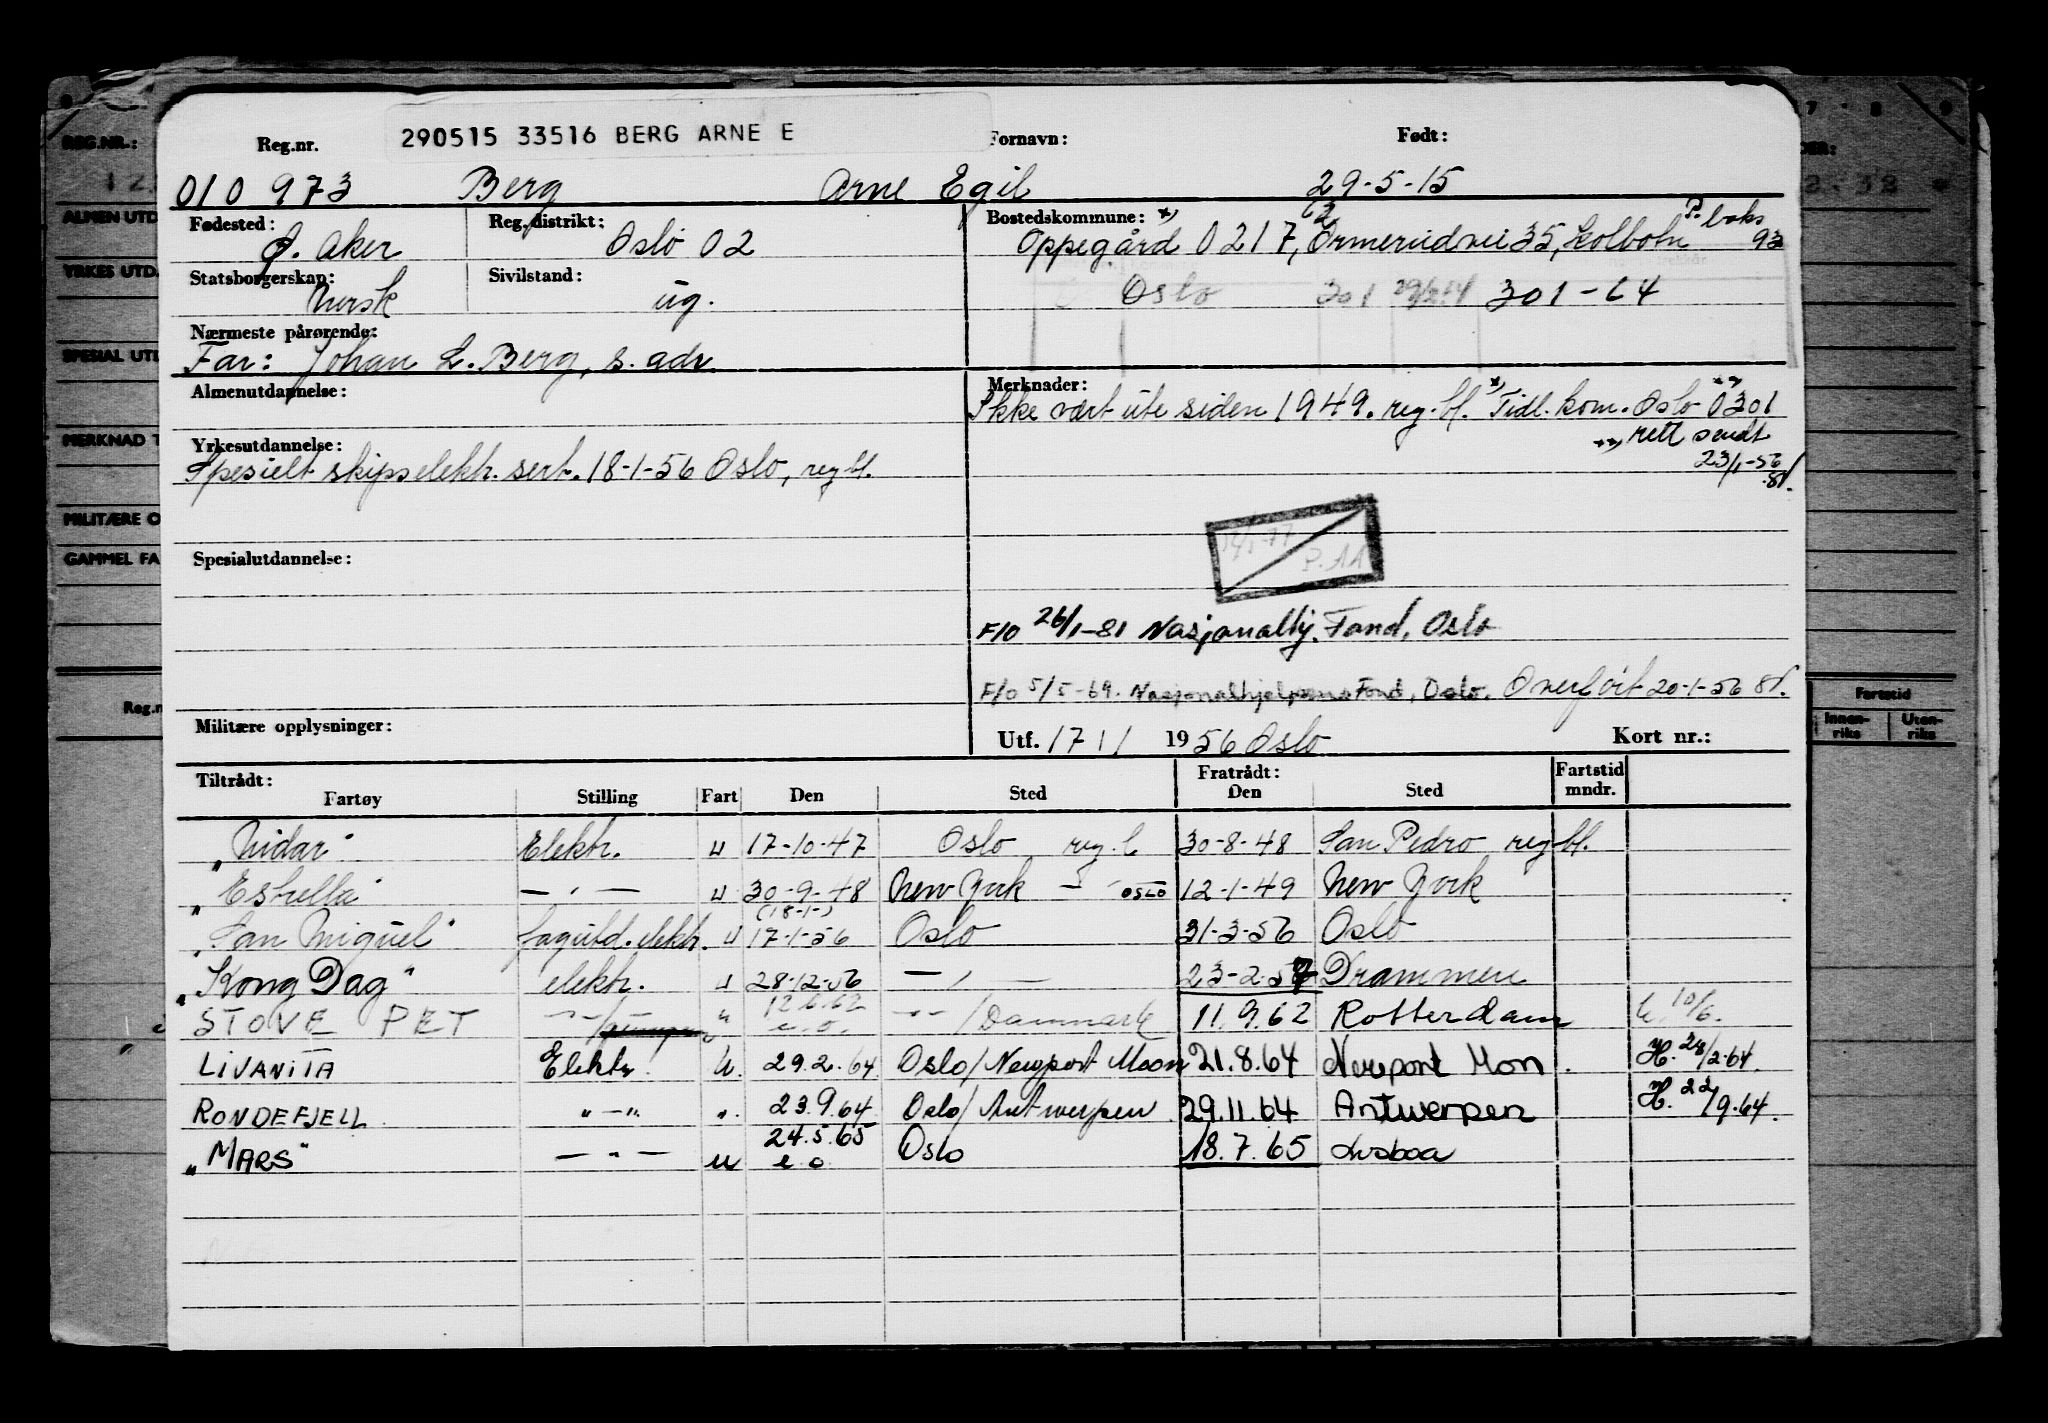 290515 33516 BERG ARNE E
Reg.nr. Fornavn: Født:
010 973 Berg Arne Egil 29-5-15
Fødested: Reg. distrikt: Bostedskommune: *)
Ø. Aker Oslo 02 Oppegård 0217, Ormerudvei 35, Kolbotn P.boks 93
Statsborgerskap: Sivilstand:
Norsk ug. Oslo 301 301-64
Nærmeste pårørende:
Far: Johan L. Berg, s. adr.
Almenutdannelse: Merknader:
Ikke vært ute siden 1949. reg.bl. *) Tidl. kom. Oslo 0301 **)
**) rett sendt
23/1-56
Yrkesutdannelse:
Spesielt skipselektr. sert. 18-1-56 Oslo, reg bl.
Spesialutdannelse:
F/O 26/1-81 Nasjonalhj. Fond, Oslo
F/O 5/5-69. Nasjonalhjelpens Fond, Oslo. Overført 20-1-56
Militære opplysninger: Utf. 17 / 1 1956 Oslo Kort nr.:
Tiltrådt: Fratrådt: Fartstid
Fartøy Stilling Fart Den Sted Den Sted mndr.
"Nidar" Elektr. u 17-10-47 Oslo reg.b 30-8-48 San Pedro reg bl.
"Estrella" — " — u 30-9-48 New York — " OSLO 12-1-49 New York
(18-1-)
"San Miguel" fagutd. elektr. u 17-1-56 Oslo 31-3-56 Oslo
"Kong Dag" elektr. u 28-12-56 — " — 23-2-57 Drammen
12.6.62
STOVE PET -"-/ " e.o. -"- /Danmark 11.9.62 Rotterdam 10/6.
LIVANITA Elektr. U. 29.2.64 Oslo/Newport Moon 21.8.64 Newport Mon. H. 28/2-64.
RONDEFJELL "-" ". 23.9.64 Oslo/Antwerpen 29.11.64 Antwerpen H. 22/9-64.
24.5.65
"MARS" — " — u e.o Oslo 18.7.65 Lisboa
REG.NR.:
ALMEN UTD
YRKES UTD.
SPESIAL UTD
MERKNAD T
MILITÆRE O
GAMMEL FA
Reg.n
Fartstid
Innen-riks Uten-riks